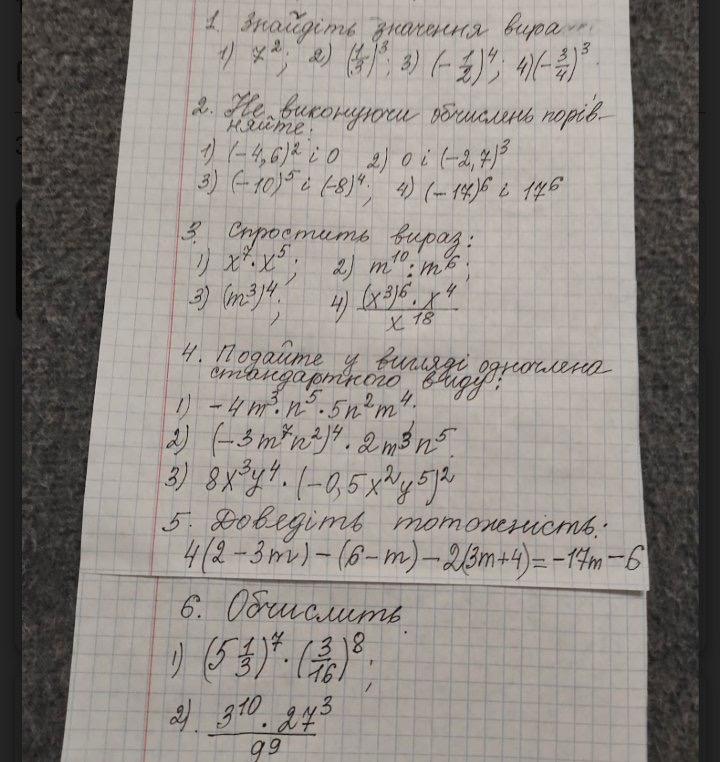 1. Знайдіть значення вира
1) 7²; 2) (1/3)³; 3) (-1/2)⁴; 4) (-3/4)³.
2. Не виконуючи обчислень порів-
няйте:
1) (-4,6)² і 0 2) 0 і (-2,7)³
3) (-10)⁵ і (-8)⁴; 4) (-17)⁶ і 17⁶
3. Спростить вираз:
1) x⁷·x⁵; 2) m¹⁰:m⁶;
3) (m³)⁴; 4) (x³)⁶·x⁴/x¹⁸
4. Подайте у вигляді одночлена
стандартного виду:
1) -4m³·n⁵·5n²m⁴.
2) (-3m⁷n²)⁴·2m³n⁵.
3) 8x³y⁴·(-0,5x²y⁵)²
5. Доведіть тотожність:
4(2-3m)-(6-m)-2(3m+4)=-17m-6
6. Обчислить.
1) (5 1/3)⁷·(3/16)⁸;
2). 3¹⁰·27³/9⁹